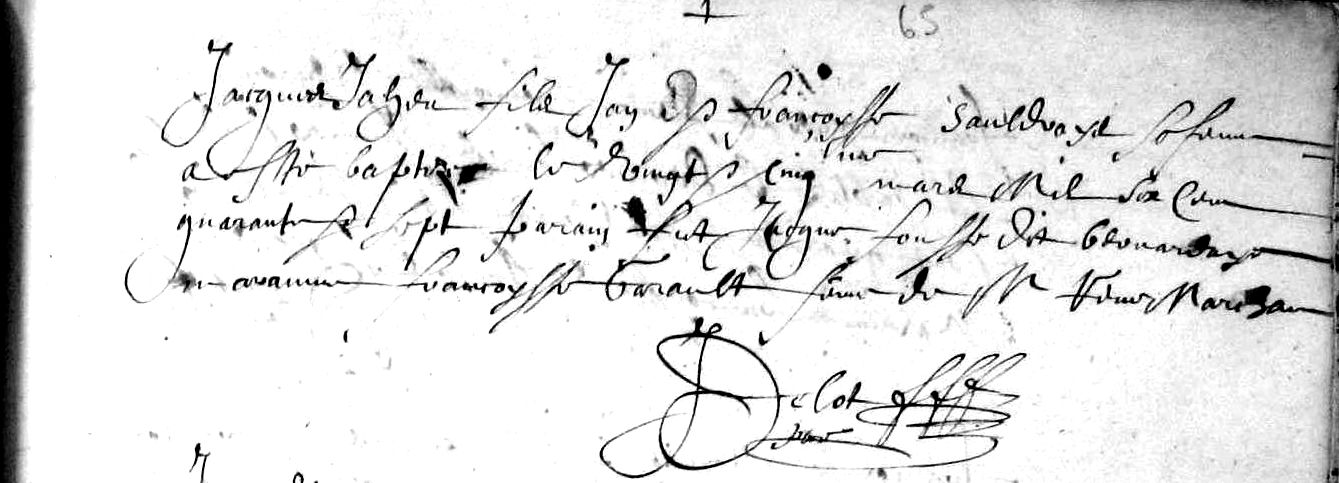 65
Jacques Jahen fils Jan & francoysse Sauldraye sa feme
a esté baptise le vingt & cinq mars Mil six cens
quarante & sept parain fut Jacque fousse dit
maraine francoysse Garault feme de Mr Rene Marchan
Delot